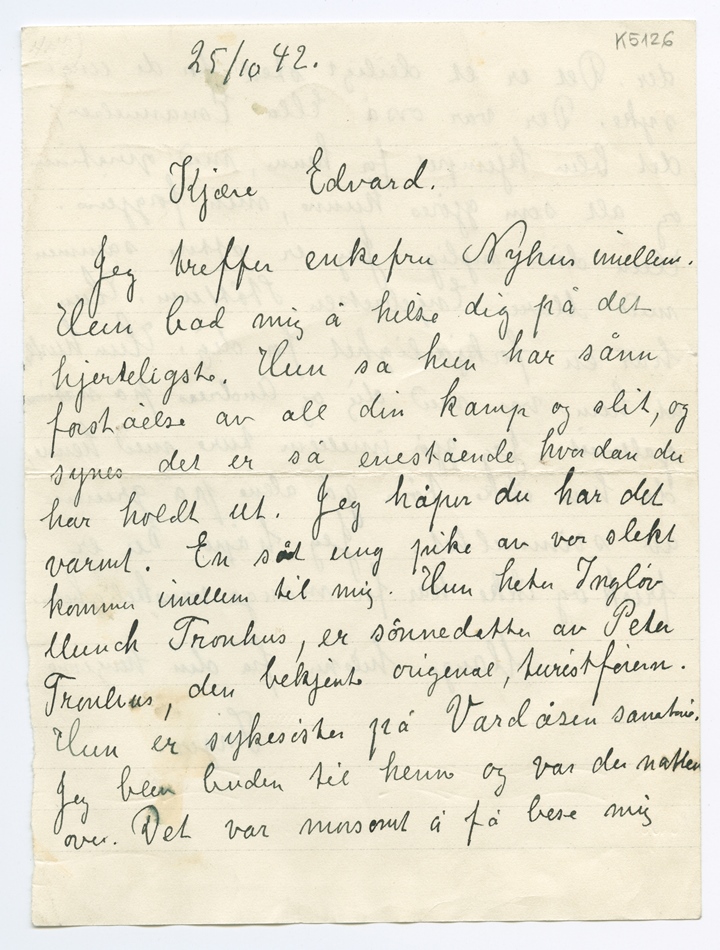 K5126
25/10 42.
Kjære Edvard.
Jeg treffer enkefru Nyhus imellem.
Hun bad mig å hilse dig på det
hjerteligste. Hun sa hun har sånn
forståelse av all din kamp og slit, og
synes det er så enestående hvordan du
har holdt ut. Jeg håper du har det
varmt. En søt ung pike av vor slekt
kommer imellem til mig. Hun heter Ingløv
Munch Tronhus, er sönnedatter av Peter
Tronhus, den bekjente original, turistföreren.
Hun er sykesöster på Vardåsen sanatorie.
Jeg blev buden til henne og var der natten
over. Det var morsomt å få bese mig